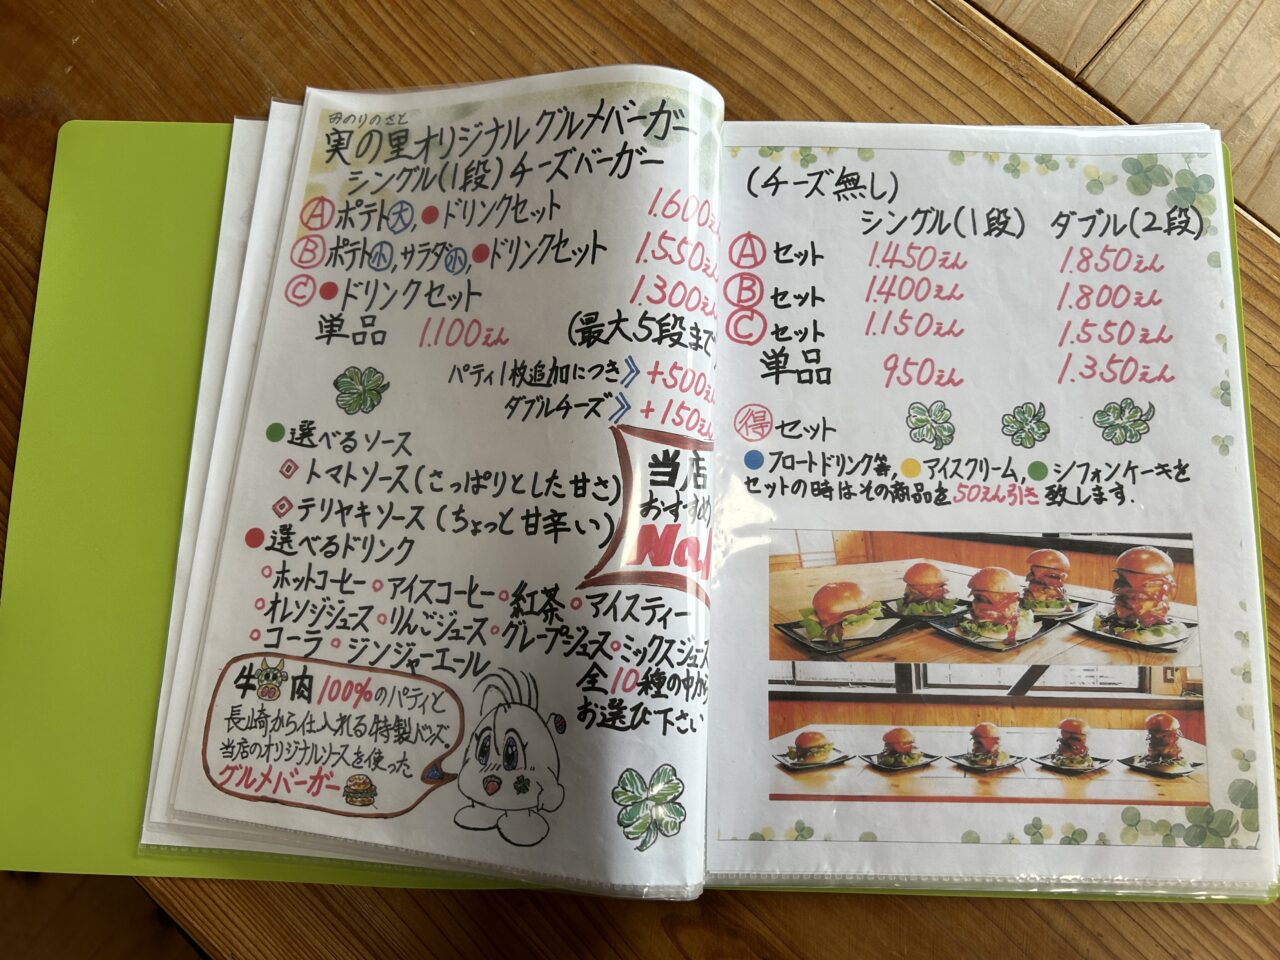 みのりのさと
実の里オリジナルグルメバーガー
シングル(1段)チーズバーガー
Ⓐポテト大,●ドリンクセット 1.600えん
Ⓑポテト小,サラダ小,●ドリンクセット 1.550えん
Ⓒ●ドリンクセット 1.300えん
単品 1.100えん (最大5段まで
パティ1枚追加につき》+500えん
ダブルチーズ》+150えん
●選べるソース
トマトソース(さっぱりとした甘さ)
テリヤキソース(ちょっと甘辛い)
当店
おすすめ
No.1
●選べるドリンク
○ホットコーヒー○アイスコーヒー○紅茶○アイスティー
○オレンジジュース○りんごジュース○グレープジュース○ミックスジュース
○コーラ○ジンジャーエール
全10種の中から
お選び下さい
牛肉100%のパティと
長崎から仕入れる特製バンズ。
当店のオリジナルソースを使った
グルメバーガー
(チーズ無し)
シングル(1段) ダブル(2段)
Ⓐセット 1.450えん 1.850えん
Ⓑセット 1.400えん 1.800えん
Ⓒセット 1.150えん 1.550えん
単品 950えん 1.350えん
得セット
●フロートドリンク等,●アイスクリーム,●シフォンケーキを
セットの時はその商品を50えん引き致します.